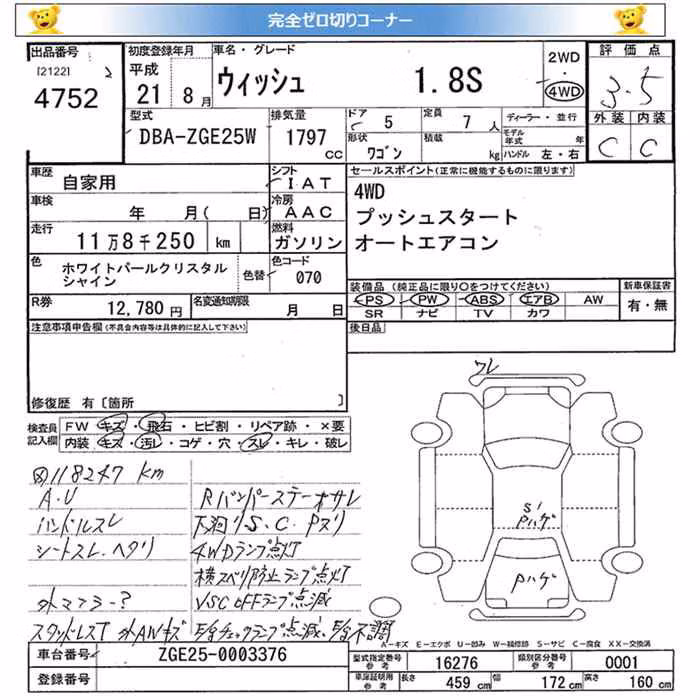 完全ゼロ切りコーナー
出品番号
[2122] 2
4752
初度登録年月
平成
21 8月
車名・グレード
ウィッシュ 1.8S
2WD
・
4WD
評価点
3.5
外装 内装
C C
型式
DBA-ZGE25W
排気量
1797
CC
ドア
5
形状
ワゴン
定員
7 人
積載
kg
ディーラー・並行
モデル年式 年
ハンドル 左・右
車歴
自家用
シフト
IAT
車検
年 月( 日)
冷房
AAC
走行
11万8千250 km
燃料
ガソリン
色
ホワイトパールクリスタル
シャイン
色替
色コード
070
R券
12,780 円
名変通知期限
月 日
セールスポイント(正常に機能するものに限ります)
4WD
プッシュスタート
オートエアコン
装備品 (純正品に限り○をつけてください)
PS PW ABS エアB AW
SR ナビ TV カワ
新車保証書
有・無
後日品
注意事項申告欄(不具合内容等は具体的に記入して下さい)
修復歴 有〔箇所 〕
検査員
記入欄
FW キズ・飛石・ヒビ割・リペア跡・×要
内装 キズ・汚レ・コゲ・穴・スレ・キレ・破レ
118247 km
A.U
ハンドルスレ
シートスレ.ヘタリ
外マフラー?
スタッドレスT 外AWキズ
Rバンパーステーオサレ
下廻りS、C、Pヌリ
4WDランプ点灯
横スベリ防止ランプ点灯
VSC OFFランプ点滅
ワレ
S1
Pハゲ
Pハゲ
A-キズ E-エクボ U-凹み W-補修跡 S-サビ C-腐食 XX-交換済
車台番号
ZGE25-0003376
登録番号
型式指定番号
参考
16276
類別区分番号
参考
0001
車庫証明用
参考
長さ 459 cm 幅 172 cm 高さ 160 cm